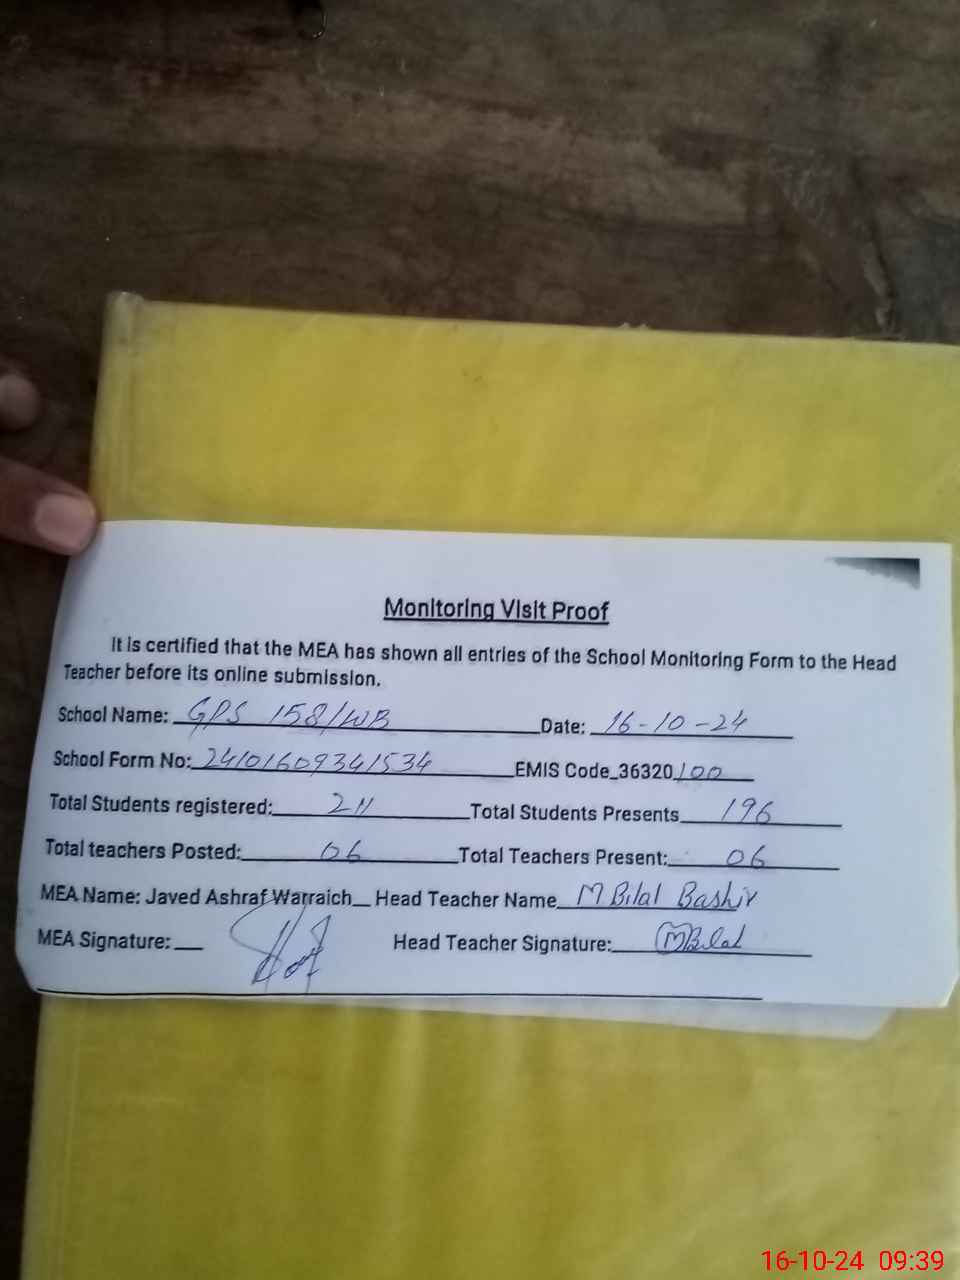 Monitoring Visit Proof
It is certified that the MEA has shown all entries of the School Monitoring Form to the Head
Teacher before its online submission.
School Name: GPS 158/WB Date: 16-10-24
School Form No: 24101609341534 EMIS Code_36320100
Total Students registered: 211 Total Students Presents 196
Total teachers Posted: 06 Total Teachers Present: 06
MEA Name: Javed Ashraf Warraich Head Teacher Name M Bilal Bashir
MEA Signature: Head Teacher Signature: MBilal
16-10-24 09:39